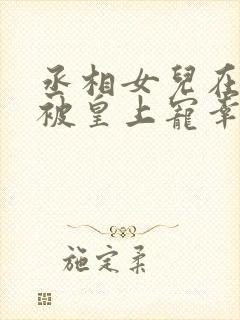 丞相女兒在
被皇上寵幸
施定柔